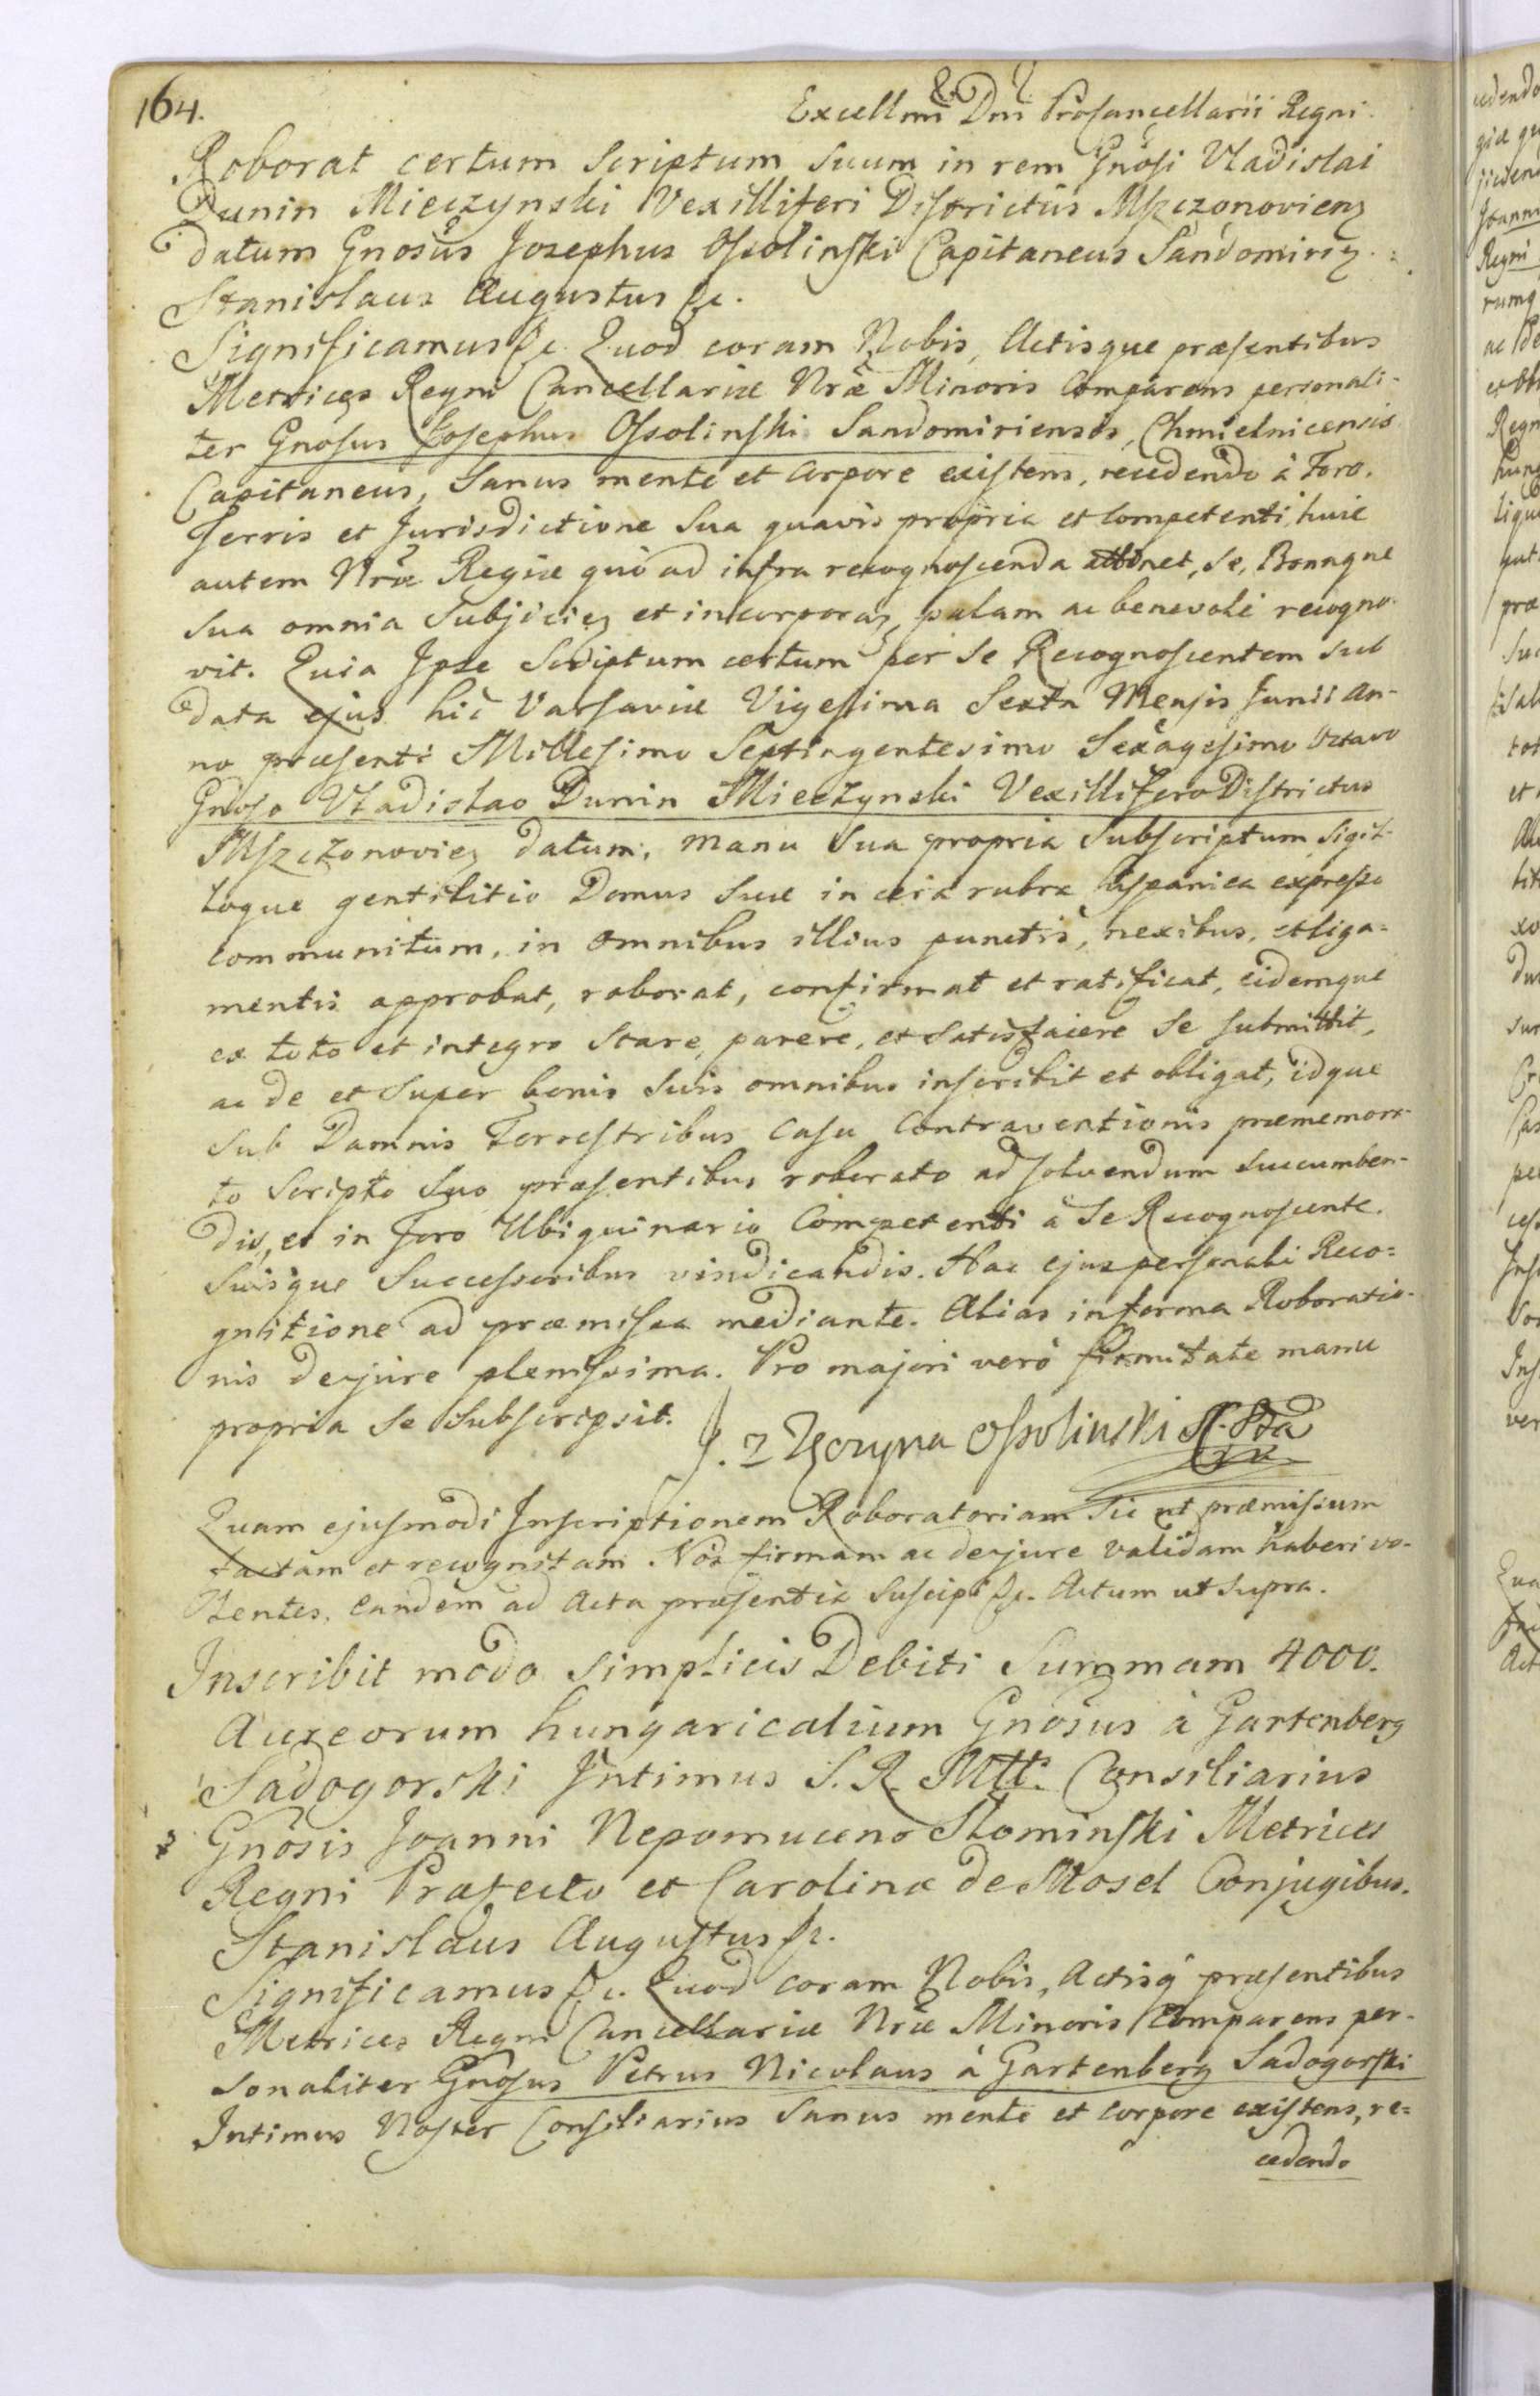 164.
Excellmi Dni Procancellarii Regni
Roborat certum Scriptum Suum in rem Gnosi Vladislai
Dunin Mieczynski Vexilliferi Districtus Mszczonovien
datum Gnosus Josephus Ossolinski Capitaneus Sandomirien
Stanislaus Augustus &c.
Significamus &c. Quod coram Nobis, Actisque præsentibus
Metrices Regni Cancellariæ Nræ Minoris Comparens personali-
ter Gnosus Josephus Ossolinski Sandomiriensis, Chmielnicensis
Capitaneus, Sanus mente et Corpore existens, recedendo à Foro.
Terris et Jurisdictione Sua quavis propria et Competenti, huic
autem Nræ Regiæ quò ad infra recognoscenda attinet, Se, Bonaque
Sua omnia Subjicien et incorporan, palam ac benevolè recogno-
vit. Quia Ipse Scriptum certum per Se Recognoscentem Sub
data ejus hic Varsaviæ Vigesima Sexta Mensis Junii An-
no præsenti Millesimo Septingentesimo Sexagesimo Octavo
Gnoso Vladislao Dunin Mieczynski Vexillifero Districtus
Mszczonovien datum, manu Sua propria Subscriptum Sigil-
loque gentilitio Domus Suæ in cera rubra hispanica expresso
communitum, in omnibus illius punctis, nexibus, et liga-
mentis approbat, roborat, confirmat et ratificat, eidemque
ex toto et integro Stare, parere, et Satisfacere Se submittit,
ac de et Super bonis Suis omnibus inscribit et obligat, idque
Sub Damnis Terrestribus Casu Contraventionis præmemora-
to Scripto Suo præsentibus roborato ad solvendum Succumben-
dis, et in Foro Ubiquinario Competenti à Se Recognoscente.
Suisque Successoribus vindicandis. Hac ejus personali Reco-
gnitione ad præmissa mediante. Alias in forma Roboratio-
nis de jure plenissima. Pro majori verò firmitate manu
propria Se Subscripsit.
J. z Tęczyna Ossolinski
Quam ejusmodi Inscriptionem Roboratoriam Sic ut præmissum
factam et recognitam Nos firmam ac de jure validam haberi vo-
lentes, Eandem ad Acta præsentia Suscipi &c. Actum ut Supra.
Inscribit modo Simplicis Debiti Summam 4000.
Aureorum hungaricalium Gnosus à Gartenberg
Sadogorski Intimus S. R. Mttis Consiliarius
Gnosis Joanni Nepomuceno Słominski Metrices
Regni Præfecto et Carolinæ de Mosel Conjugibus.
Stanislaus Augustus &c.
Significamus &c. Quod coram Nobis, Actisq præsentibus
Metrices Regni Cancellariæ Nræ Minoris Comparens per-
sonaliter Gnosus Petrus Nicolaus à Gartenberg Sadogorski
Intimus Noster Consiliarius Sanus mente et Corpore existens, re-
cedendo